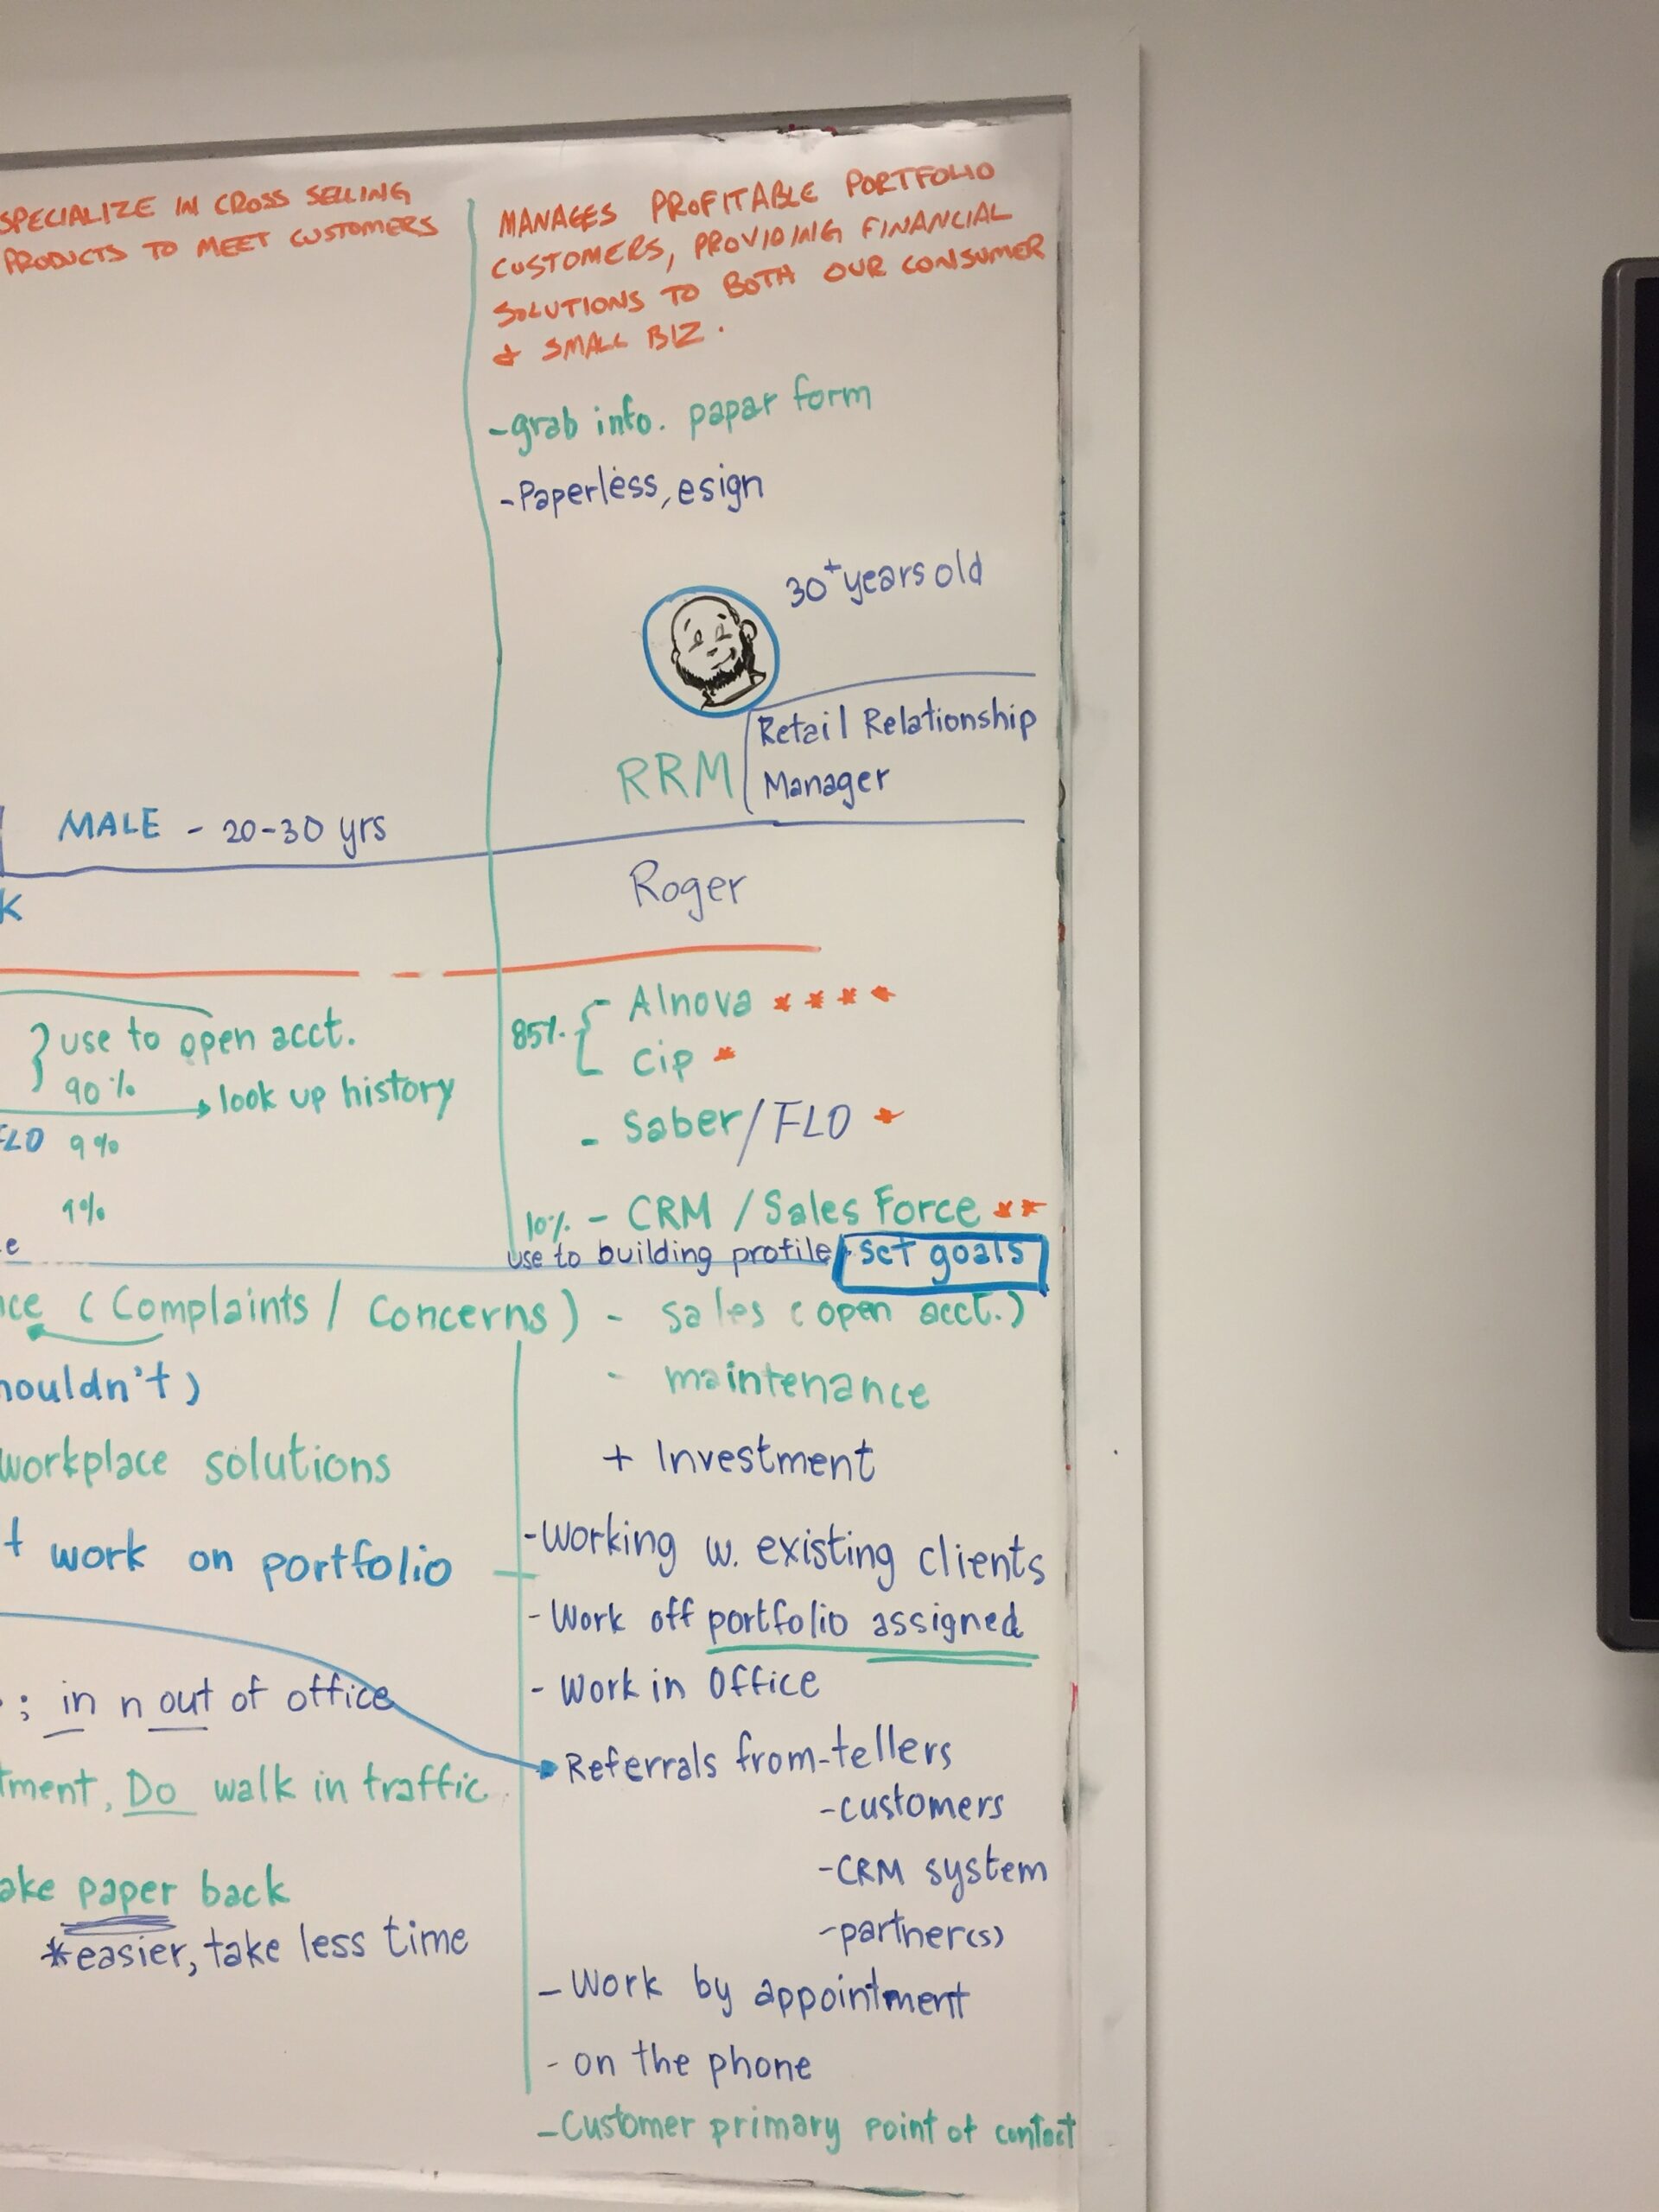 SPECIALIZE IN CROSS SELLING
PRODUCTS TO MEET CUSTOMERS
MALE - 20-30 yrs
K
use to open acct.
90%
look up history
FLO 9%
1%
e
nce (Complaints / Concerns)
houldn't)
workplace solutions
t work on portfolio
; in n out of office
tment, Do walk in traffic
ake paper back
*easier, take less time
MANAGES PROFITABLE PORTFOLIO
CUSTOMERS, PROVIDING FINANCIAL
SOLUTIONS TO BOTH OUR CONSUMER
& SMALL BIZ.
-grab info. papar form
-Paperless, esign
30+ years old
Retail Relationship
RRM Manager
Roger
85% - Alnova ****
Cip *
- Saber/FLO *
10% - CRM / Sales Force **
use to building profile, set goals
- sales (open acct.)
- maintenance
+ Investment
-Working w. existing clients
-Work off portfolio assigned
-Work in Office
Referrals from-tellers
-customers
-CRM system
-partner(s)
-Work by appointment
-on the phone
-Customer primary point of contact